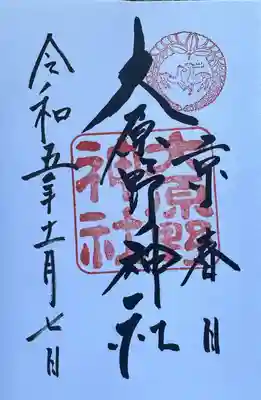 京春日
大原野神社
大原野
神社
令和五年十一月七日